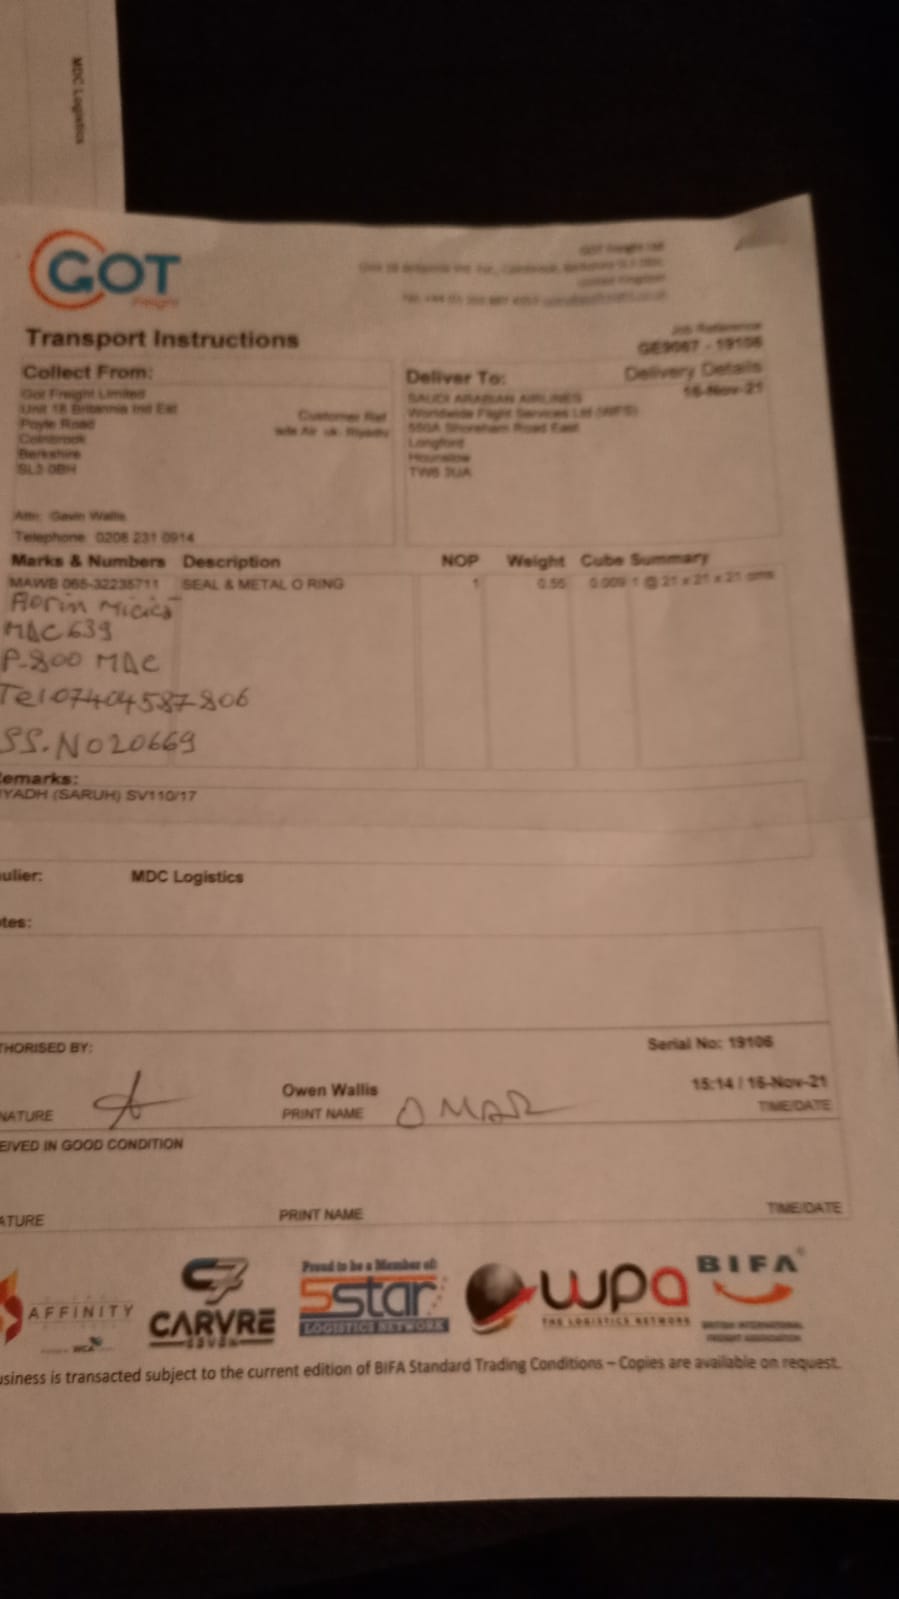 MDC Logistics
GOT
Freight
GOT Freight Ltd
United Kingdom
Transport Instructions
Job Reference
GE9087 - 19106
Collect From:
Got Freight Limited
Unit 18 Britannia Ind Est
Poyle Road
Colnbrook
Berkshire
SL3 0BH
Customer Ref
Attn: Gavin Wallis
Telephone: 0208 231 0914
Deliver To:
SAUDI ARABIAN AIRLINES
Worldwide Flight Services Ltd (WFS)
550A Shoreham Road East
Longford
Hounslow
TW6 3UA
Delivery Details
16-Nov-21
Marks & Numbers Description NOP Weight Cube Summary
MAWB 065-32235711 SEAL & METAL O RING 1 0.55 0.009 1 @ 21 x 21 x 21 cms
Florin
MDC 639
P-800 MDC
Tel 07404587806
SS.NO20669
emarks:
YADH (SARUH) SV110/17
ulier: MDC Logistics
tes:
THORISED BY:
Serial No: 19106
Owen Wallis
15:14 / 16-Nov-21
NATURE
PRINT NAME OMAR
TIME/DATE
EIVED IN GOOD CONDITION
ATURE
PRINT NAME
TIME/DATE
AFFINITY
WCA
C7
CARVRE
SEVEN
Proud to be a Member of:
5star
LOGISTICS NETWORK
wpa
THE LOGISTICS NETWORK
BIFA
BRITISH INTERNATIONAL
FREIGHT ASSOCIATION
usiness is transacted subject to the current edition of BIFA Standard Trading Conditions – Copies are available on request.